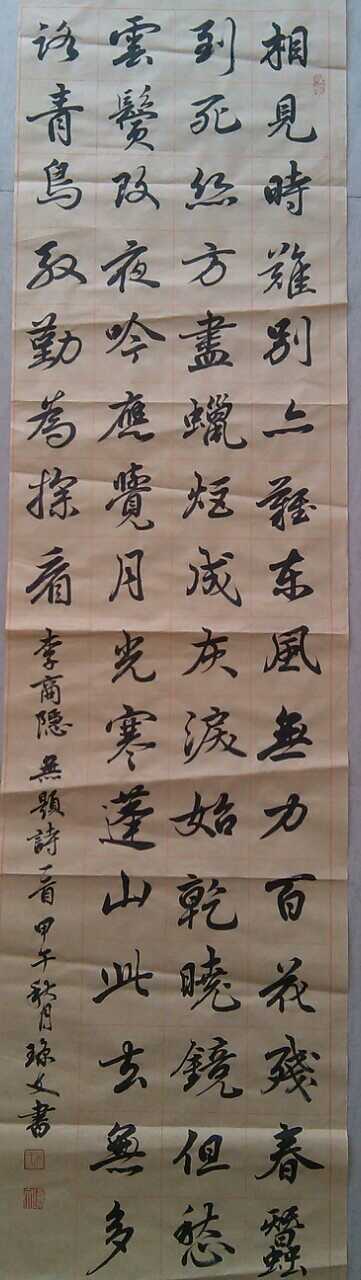 相見時難別亦難东風無力百花殘春蠶
到死絲方盡蠟炬成灰淚始乾曉鏡但愁
雲鬢改夜吟應覺月光寒蓬山此去無多
路青鳥殷勤為探看
李商隐無題詩一首甲午秋月琼文書